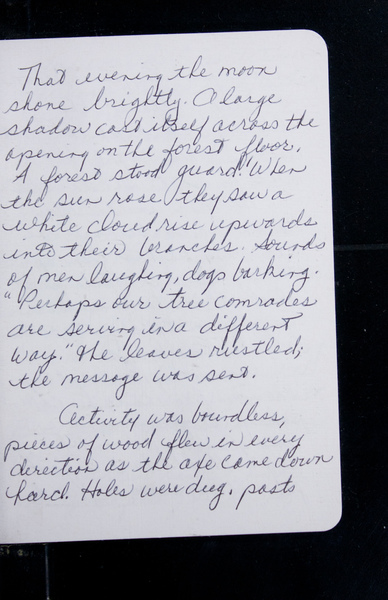 That evening the moon
shone brightly. A large
shadow cast itself across the
opening on the forest floor.
A forest stood guard. When
the sun rose they saw a
white cloud rise upwards
into their branches. Sounds
of men laughing, dogs barking.
"Perhaps our tree comrades
are serving in a different
way." The leaves rustled;
the message was sent.
Activity was boundless,
pieces of wood flew in every
direction as the axe came down
hard. Holes were dug. posts